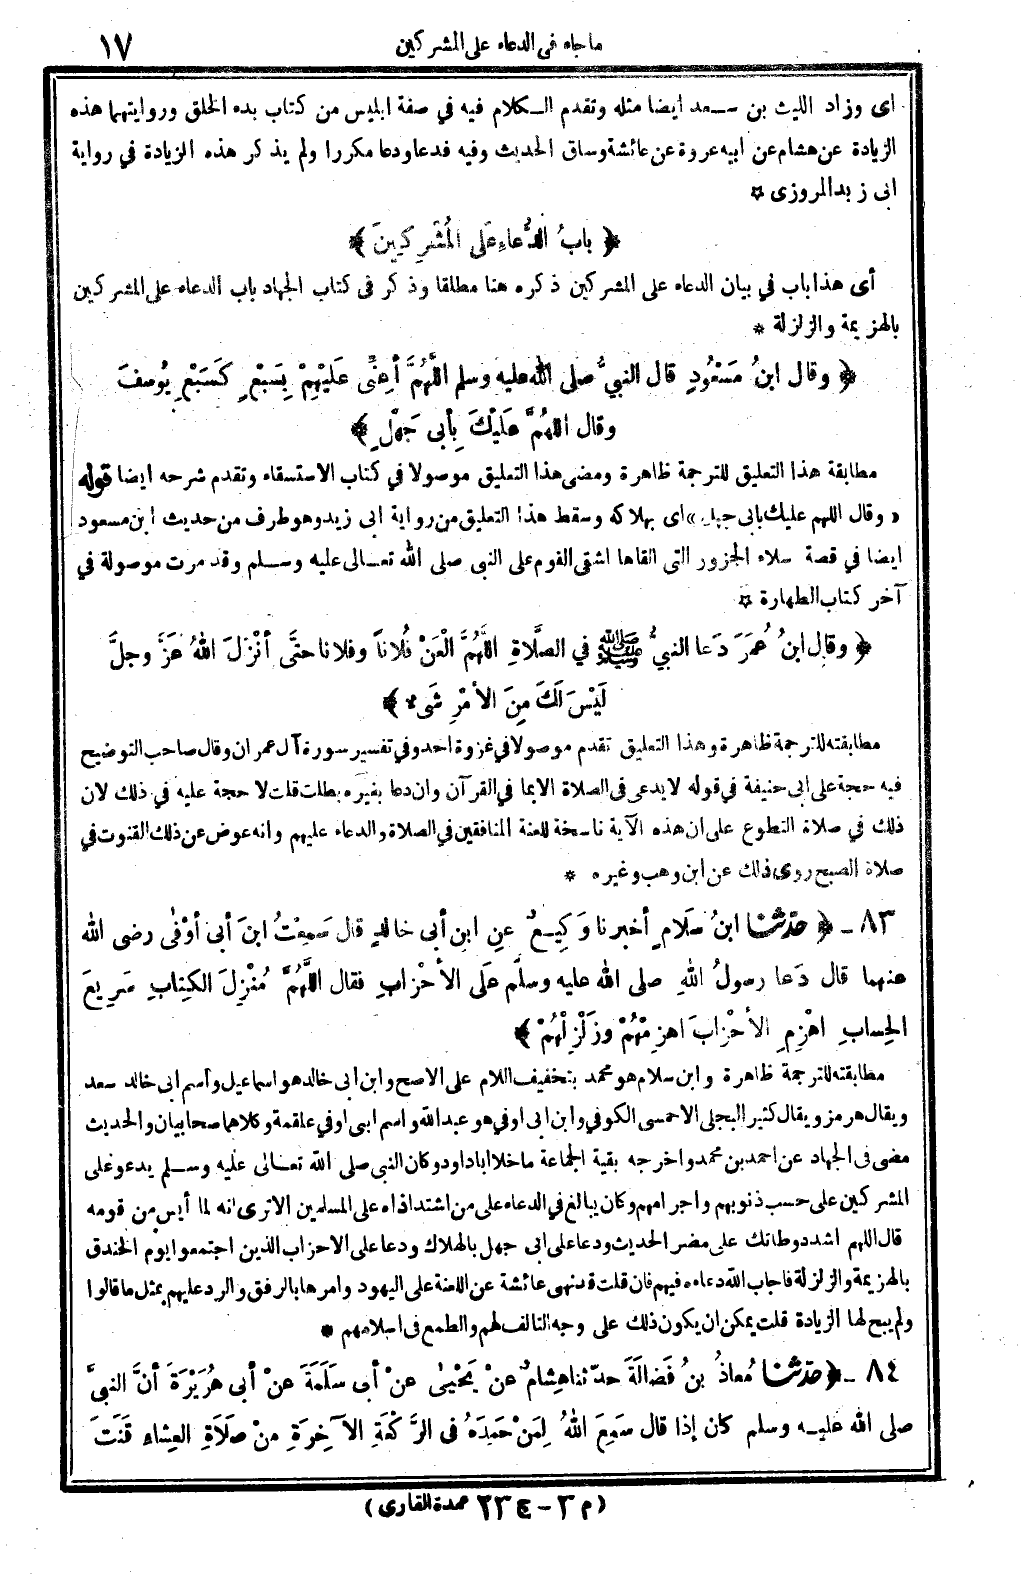 ما جاء في الدعاء على المشركين ١٧
اى وزاد الليث بن سعد ايضا مثله وتقدم الكلام فيه في صفة ابليس من كتاب بدء الخلق وروايتهما هذه
الزيادة عن هشام عن ابيه عروة عن عائشة وساق الحديث وفيه فدعا ودعا مكررا ولم يذكر هذه الزيادة في رواية
ابى زيد المروزى ☆
﴿ بابُ الدُّعاءِ عَلى المُشْرِكِينَ ﴾
أى هذا باب في بيان الدعاء على المشركين ذكره هنا مطلقا وذكر فى كتاب الجهاد باب الدعاء على المشركين
بالهزيمة والزلزلة *
﴿ وقال ابنُ مَسْعُودٍ قال النبيُّ صلى الله عليه وسلم اللَّهُمَّ أعِنِّى عَلَيْهِمْ بِسَبْعٍ كَسَبْعِ يُوسفَ
وقال اللهُمَّ عَلَيْكَ بِأبى جَهْلٍ ﴾
مطابقة هذا التعليق للترجمة ظاهرة ومضى هذا التعليق موصولا في كتاب الاستسقاء وتقدم شرحه ايضا قوله
« وقال اللهم عليك بابى جهل » اى بهلاكه وسقط هذا التعليق من رواية ابى زيد وهو طرف من حديث ابن مسعود
ايضا في قصة سلاء الجزور التى القاها اشقى القوم على النبى صلى الله تعالى عليه وسلم وقد مرت موصولة في
آخر كتاب الطهارة ☆
﴿ وقال ابنُ عُمَرَ دَعا النبيُّ ﷺ في الصَّلاةِ اللَّهُمَّ الْعَنْ فُلاناً وفلانا حتَّى أنْزَلَ اللهُ عَزَّ وجلَّ
لَيْسَ لَكَ مِنَ الأمْرِ شَىء ﴾
مطابقته للترجمة ظاهرة وهذا التعليق تقدم موصولا في غزوة احد وفي تفسير سورة آل عمران وقال صاحب التوضيح
فيه حجة على ابى حنيفة في قوله لا يدعى فى الصلاة الا بما في القرآن وان دعا بغيره بطلت قلت لا حجة عليه في ذلك لان
ذلك في صلاة التطوع على ان هذه الآية ناسخة للعنة المنافقين في الصلاة والدعاء عليهم وانه عوض عن ذلك القنوت في
صلاة الصبح روى ذلك عن ابن وهب وغيره *
٨٣ - ﴿ حدّثنا ابنُ سَلامٍ أخبرنا وَكِيعٌ عنِ ابنِ أبى خالدٍ قال سَمِعْتُ ابنَ أبى أوْفٰى رضى الله
عنهما قال دَعا رسولُ اللهِ صلى الله عليه وسلَّم عَلَى الأحْزابِ فقال اللَّهُمَّ مُنْزِلَ الكِتابِ سَرِيعَ
الحِسابِ اهْزِمِ الأحْزابَ اهزِمْهُمْ وزَلْزِلْهُمْ ﴾
مطابقته للترجمة ظاهرة وابن سلام هو محمد بتخفيف اللام على الاصح وابن ابى خالد هو اسماعيل واسم ابى خالد سعد
ويقال هرمز ويقال كثير البجلى الاحمسى الكوفي وابن ابى اوفي هو عبد الله واسم ابى اوفي علقمة وكلاهما صحابيان والحديث
مضى فى الجهاد عن احمد بن محمد واخرجه بقية الجماعة ما خلا ابا داود وكان النبي صلى الله تعالى عليه وسلم يدعو على
المشركين على حسب ذنوبهم واجرامهم وكان يبالغ في الدعاء على من اشتد اذاه على المسلمين الا ترى انه لما أيس من قومه
قال اللهم اشدد وطاتك على مضر الحديث ودعا على ابى جهل بالهلاك ودعا على الاحزاب الذين اجتمعوا يوم الخندق
بالهزيمة والزلزلة فاجاب الله دعاءه فيهم فان قلت قد نهى عائشة عن اللعنة على اليهود وامرها بالرفق والرد عليهم بمثل ما قالوا
ولم يبح لها الزيادة قلت يمكن ان يكون ذلك على وجه التالف لهم والطمع فى اسلامهم *
٨٤ - ﴿ حدّثنا مُعاذُ بنُ فَضالَةَ حدّثنا هِشامٌ عنْ يَحْيٰى عنْ أبى سَلَمَةَ عنْ أبى هُرَيْرَةَ أنَّ النبىَّ
صلى الله عليه وسلم كان إذا قال سَمِعَ اللهُ لِمَنْ حَمِدَهُ فى الرَّكْعَةِ الآخِرَةِ مِنْ صَلَاةِ العِشاءِ قَنَتَ
(م ٣ - ج ٢٣ عمدة القارى)